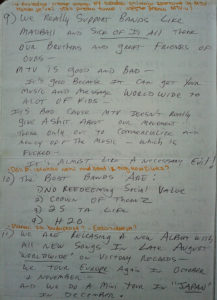 9) We Really Support Bands Like
Madball and Sick of It All There
Our Brothers and great Friends of
Ours -
MTV is good and bad -
It's good Because It Can get Your
Music and Message World wide to
Alot of kids -
It's Bad Cause MTV Doesn't Really
give A Shit About our movement
There only out to Commercialize and
Money off The Music - which is
Fucked -
It's Almost Like a Necessary Evil!
10) The Best Bands Are -
1) No Redeeming Social Value
2) Crown of Thornz
3) 25 Ta Life
4) H2O
11) We are Releasing a New Album with
All New Songs In Late August
"Worldwide" on Victory Records -
We Tour Europe Again In October
November
And we Do A Mini Tour In "JAPAN"
In December.